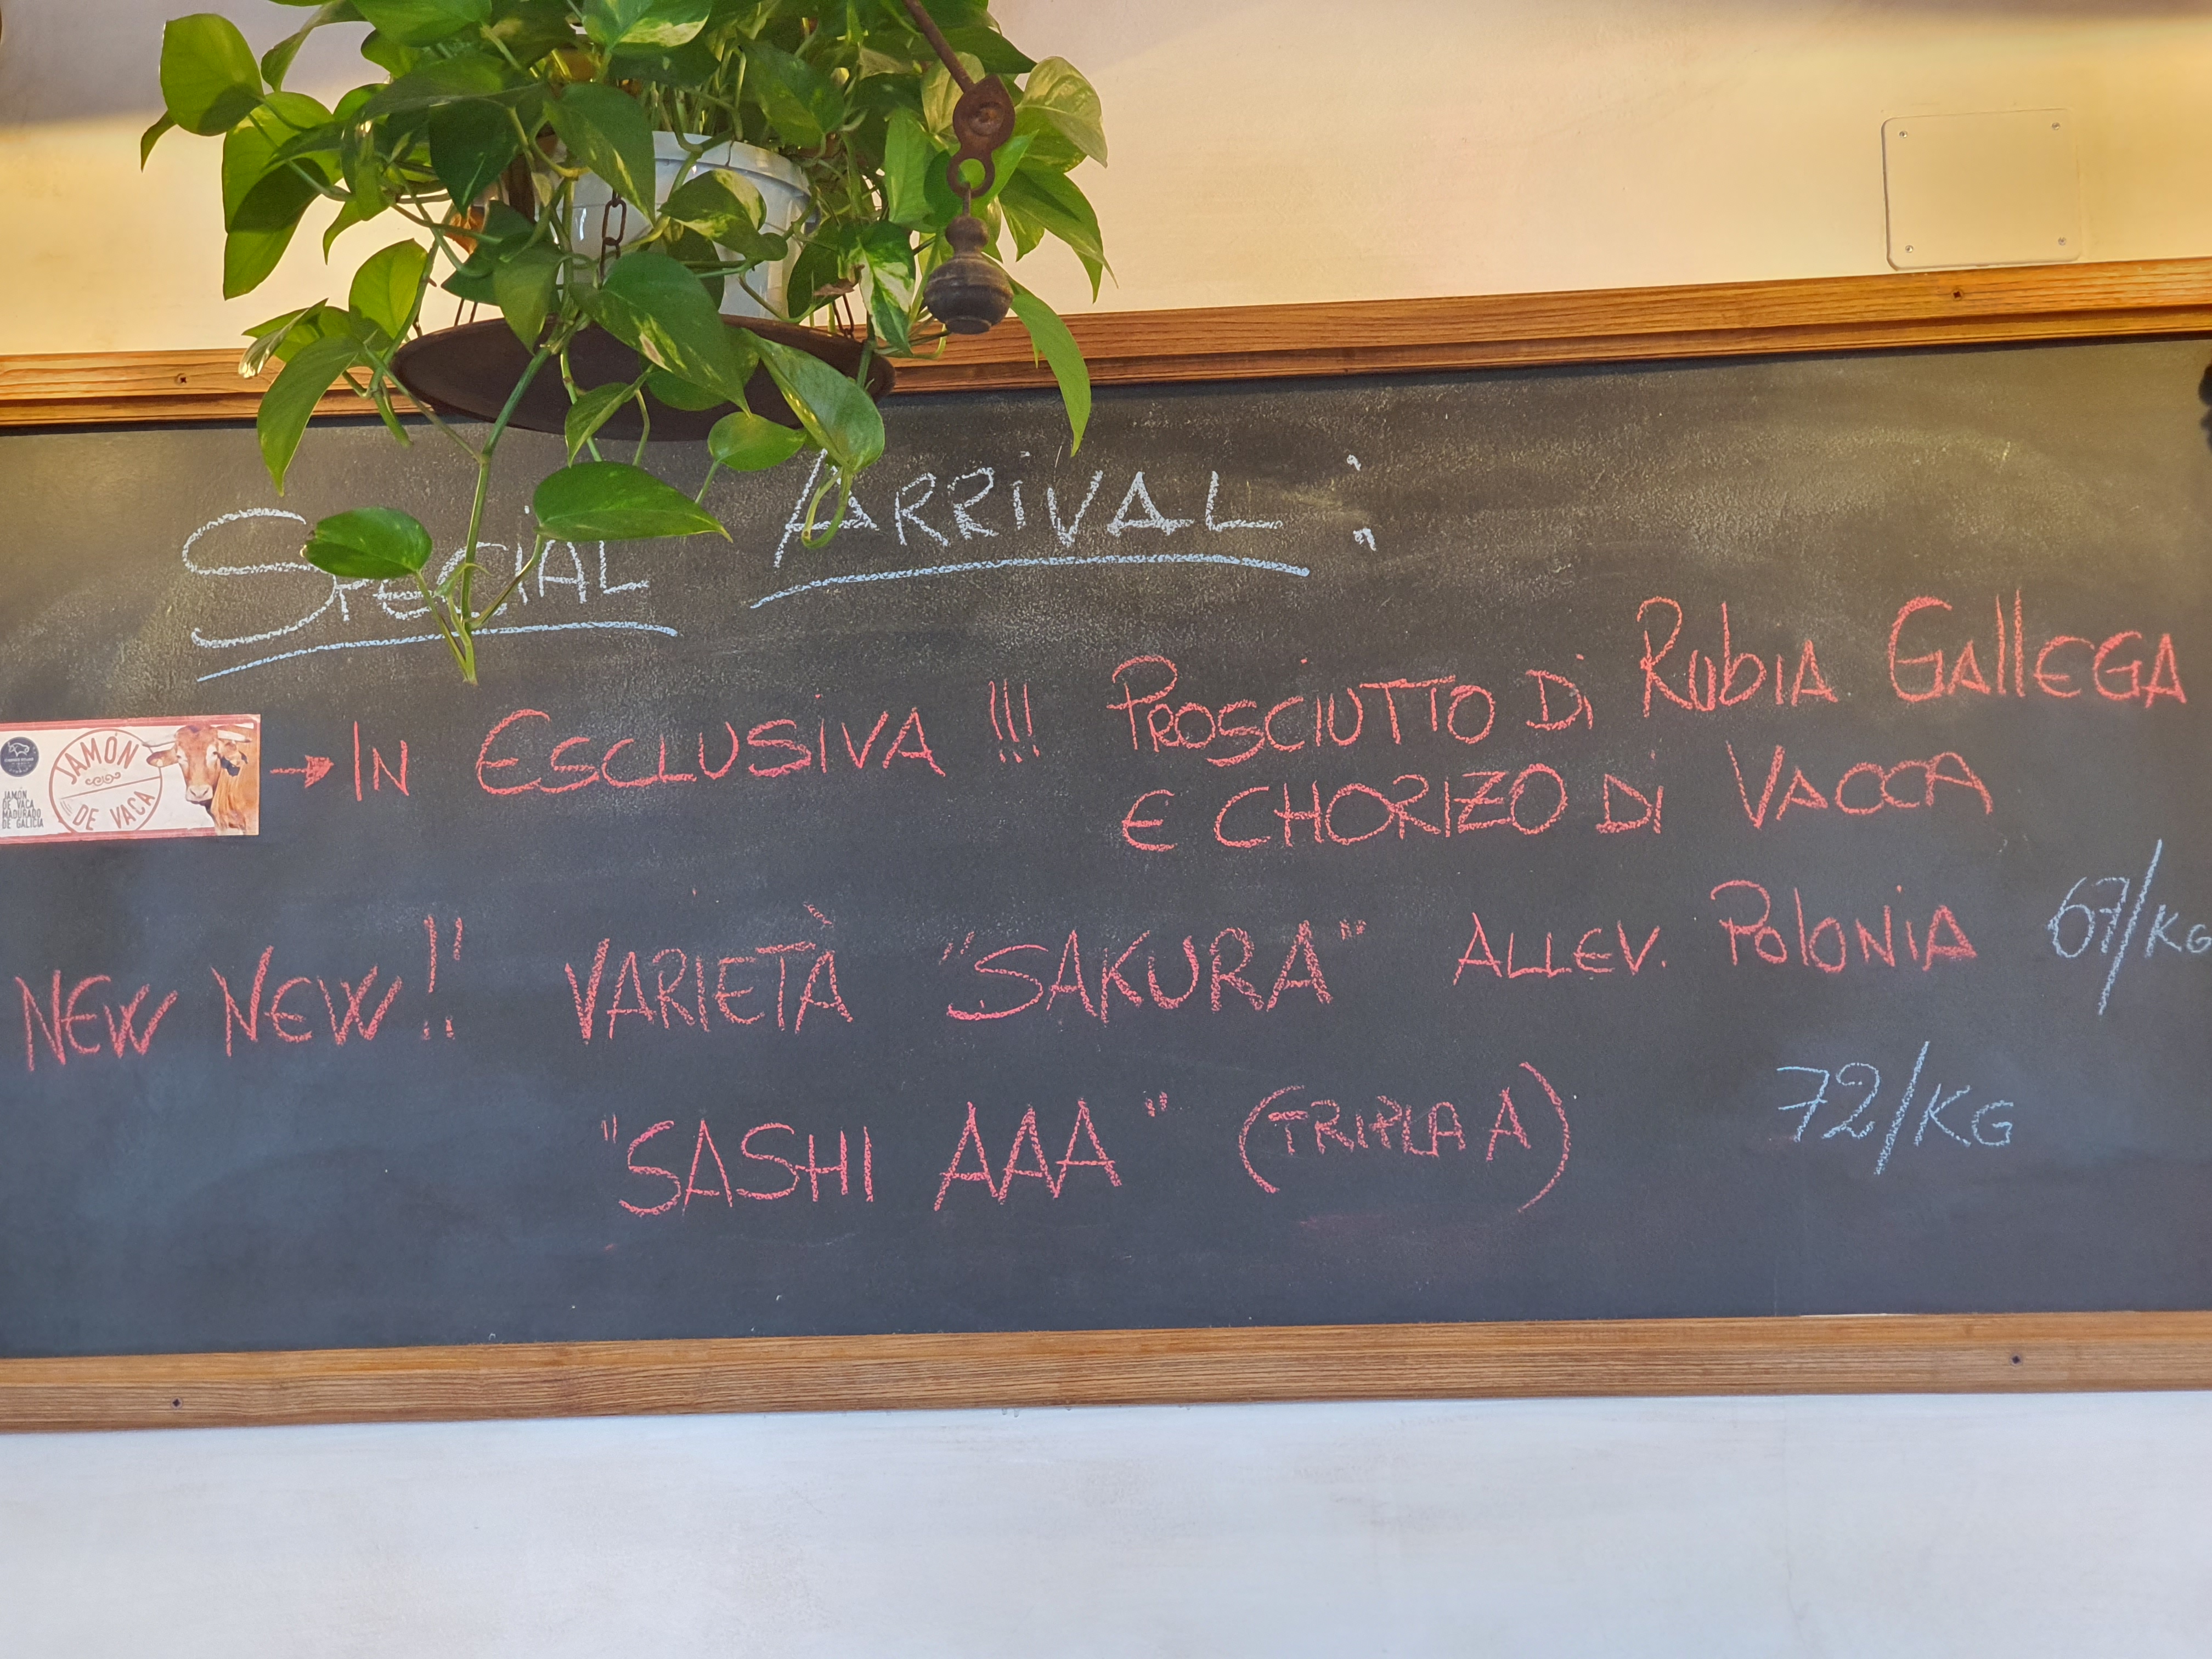 SPECIAL ARRIVAL :
JAMÓN
DE VACA
JAMÓN
DE VACA
MADURADO
DE GALICIA
IN ESCLUSIVA !!! PROSCIUTTO Di RubiA GAllEGA
E CHORIZO Di VACCA
NEW NEW !! VARIETÀ "SAKURA" ALLEV. PolONiA 67/KG
"SASHI AAA" (TRIPLA A) 72/KG